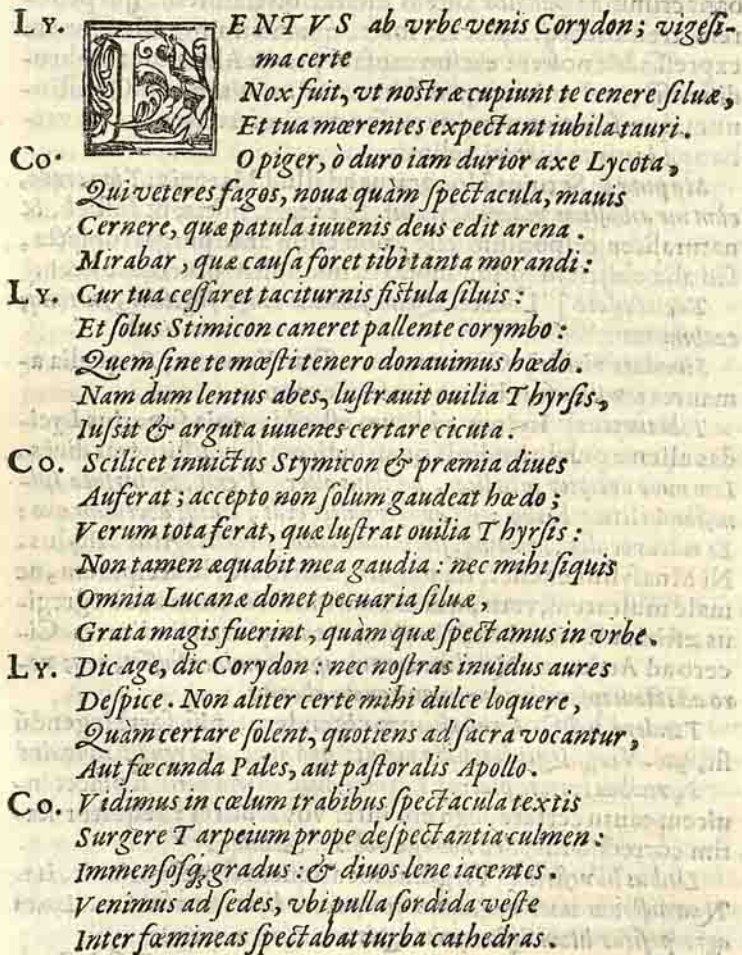 LY. LENTVS ab vrbe venis Corydon; vigesi-
ma certe
Nox fuit, vt nostræ cupiunt te cenere siluæ,
Et tua mœrentes expectant iubila tauri.
Co. O piger, ò duro iam durior axe Lycota,
Qui veteres fagos, noua quàm spectacula, mauis
Cernere, quæ patula iuuenis deus edit arena.
Mirabar, quæ causa foret tibi tanta morandi:
LY. Cur tua cessaret taciturnis fistula siluis:
Et solus Stimicon caneret pallente corymbo:
Quem sine te mœsti tenero donauimus hœdo.
Nam dum lentus abes, lustrauit ouilia Thyrsis,
Iussit & arguta iuuenes certare cicuta.
Co. Scilicet inuictus Stymicon & præmia diues
Auferat; accepto non solum gaudeat hœdo;
Verum tota ferat, quæ lustrat ouilia Thyrsis:
Non tamen æquabit mea gaudia: nec mihi siquis
Omnia Lucanæ donet pecuaria siluæ,
Grata magis fuerint, quàm quæ spectamus in vrbe.
LY. Dic age, dic Corydon: nec nostras inuidus aures
Despice. Non aliter certe mihi dulce loquere,
Quàm certare solent, quotiens ad sacra vocantur,
Aut fœcunda Pales, aut pastoralis Apollo.
Co. Vidimus in cœlum trabibus spectacula textis
Surgere Tarpeium prope despectantia culmen:
Immensosq; gradus: & diuos lene iacentes.
Venimus ad sedes, vbi pulla sordida veste
Inter fœmineas spectabat turba cathedras.